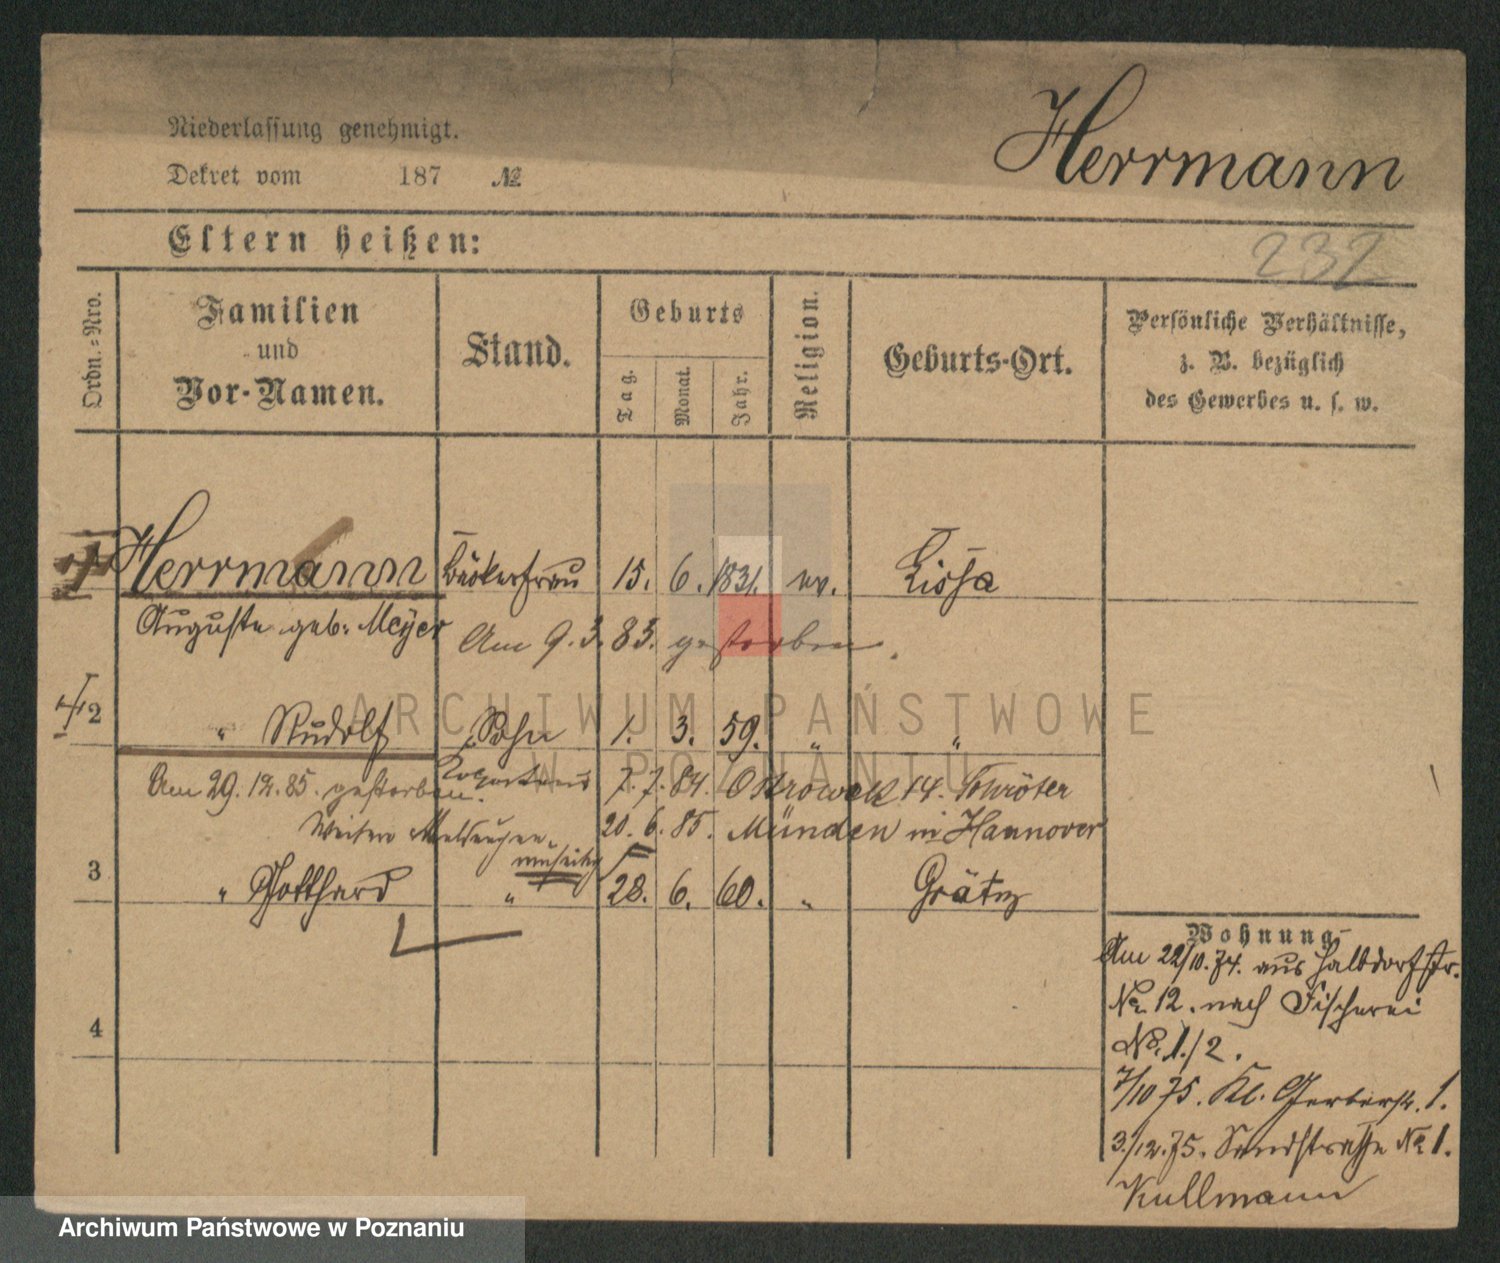 Niederlassung genehmigt.
Dekret vom 187 №
Herrmann
232
Eltern heißen:
Ordn.=Nro.
Familien
und
Vor-Namen.
Stand.
Geburts
Tag.
Monat.
Jahr.
Religion.
Geburts-Ort.
Persönliche Verhältnisse,
z. B. bezüglich
des Gewerbes u. s. w.
Herrmann Bäckerfrau 15. 6. 1831. ev. Lissa
Auguste geb: Meyer Am 9. 3. 83. gestorben.
2 " Rudolf Sohn 1. 3. 59. " "
Am 29. 12. 85. gestorben. 7. 7. 84. Ostrowek 14. Schröter
Weitere Meldungen 20. 6. 85. Münden in Hannover
umseitig
3 " Gotthard " 28. 6. 60. " Grätz
4
Wohnung
Am 22/10. 74. aus Halbdorfstr.
No. 12. nach Fischerei
No. 1./2.
7/10 75. Kl. Gerberstr. 1.
3./12. 75. Sandstrasse No 1.
Kullmann
ARCHIWUM PAŃSTWOWE
W POZNANIU
Archiwum Państwowe w Poznaniu